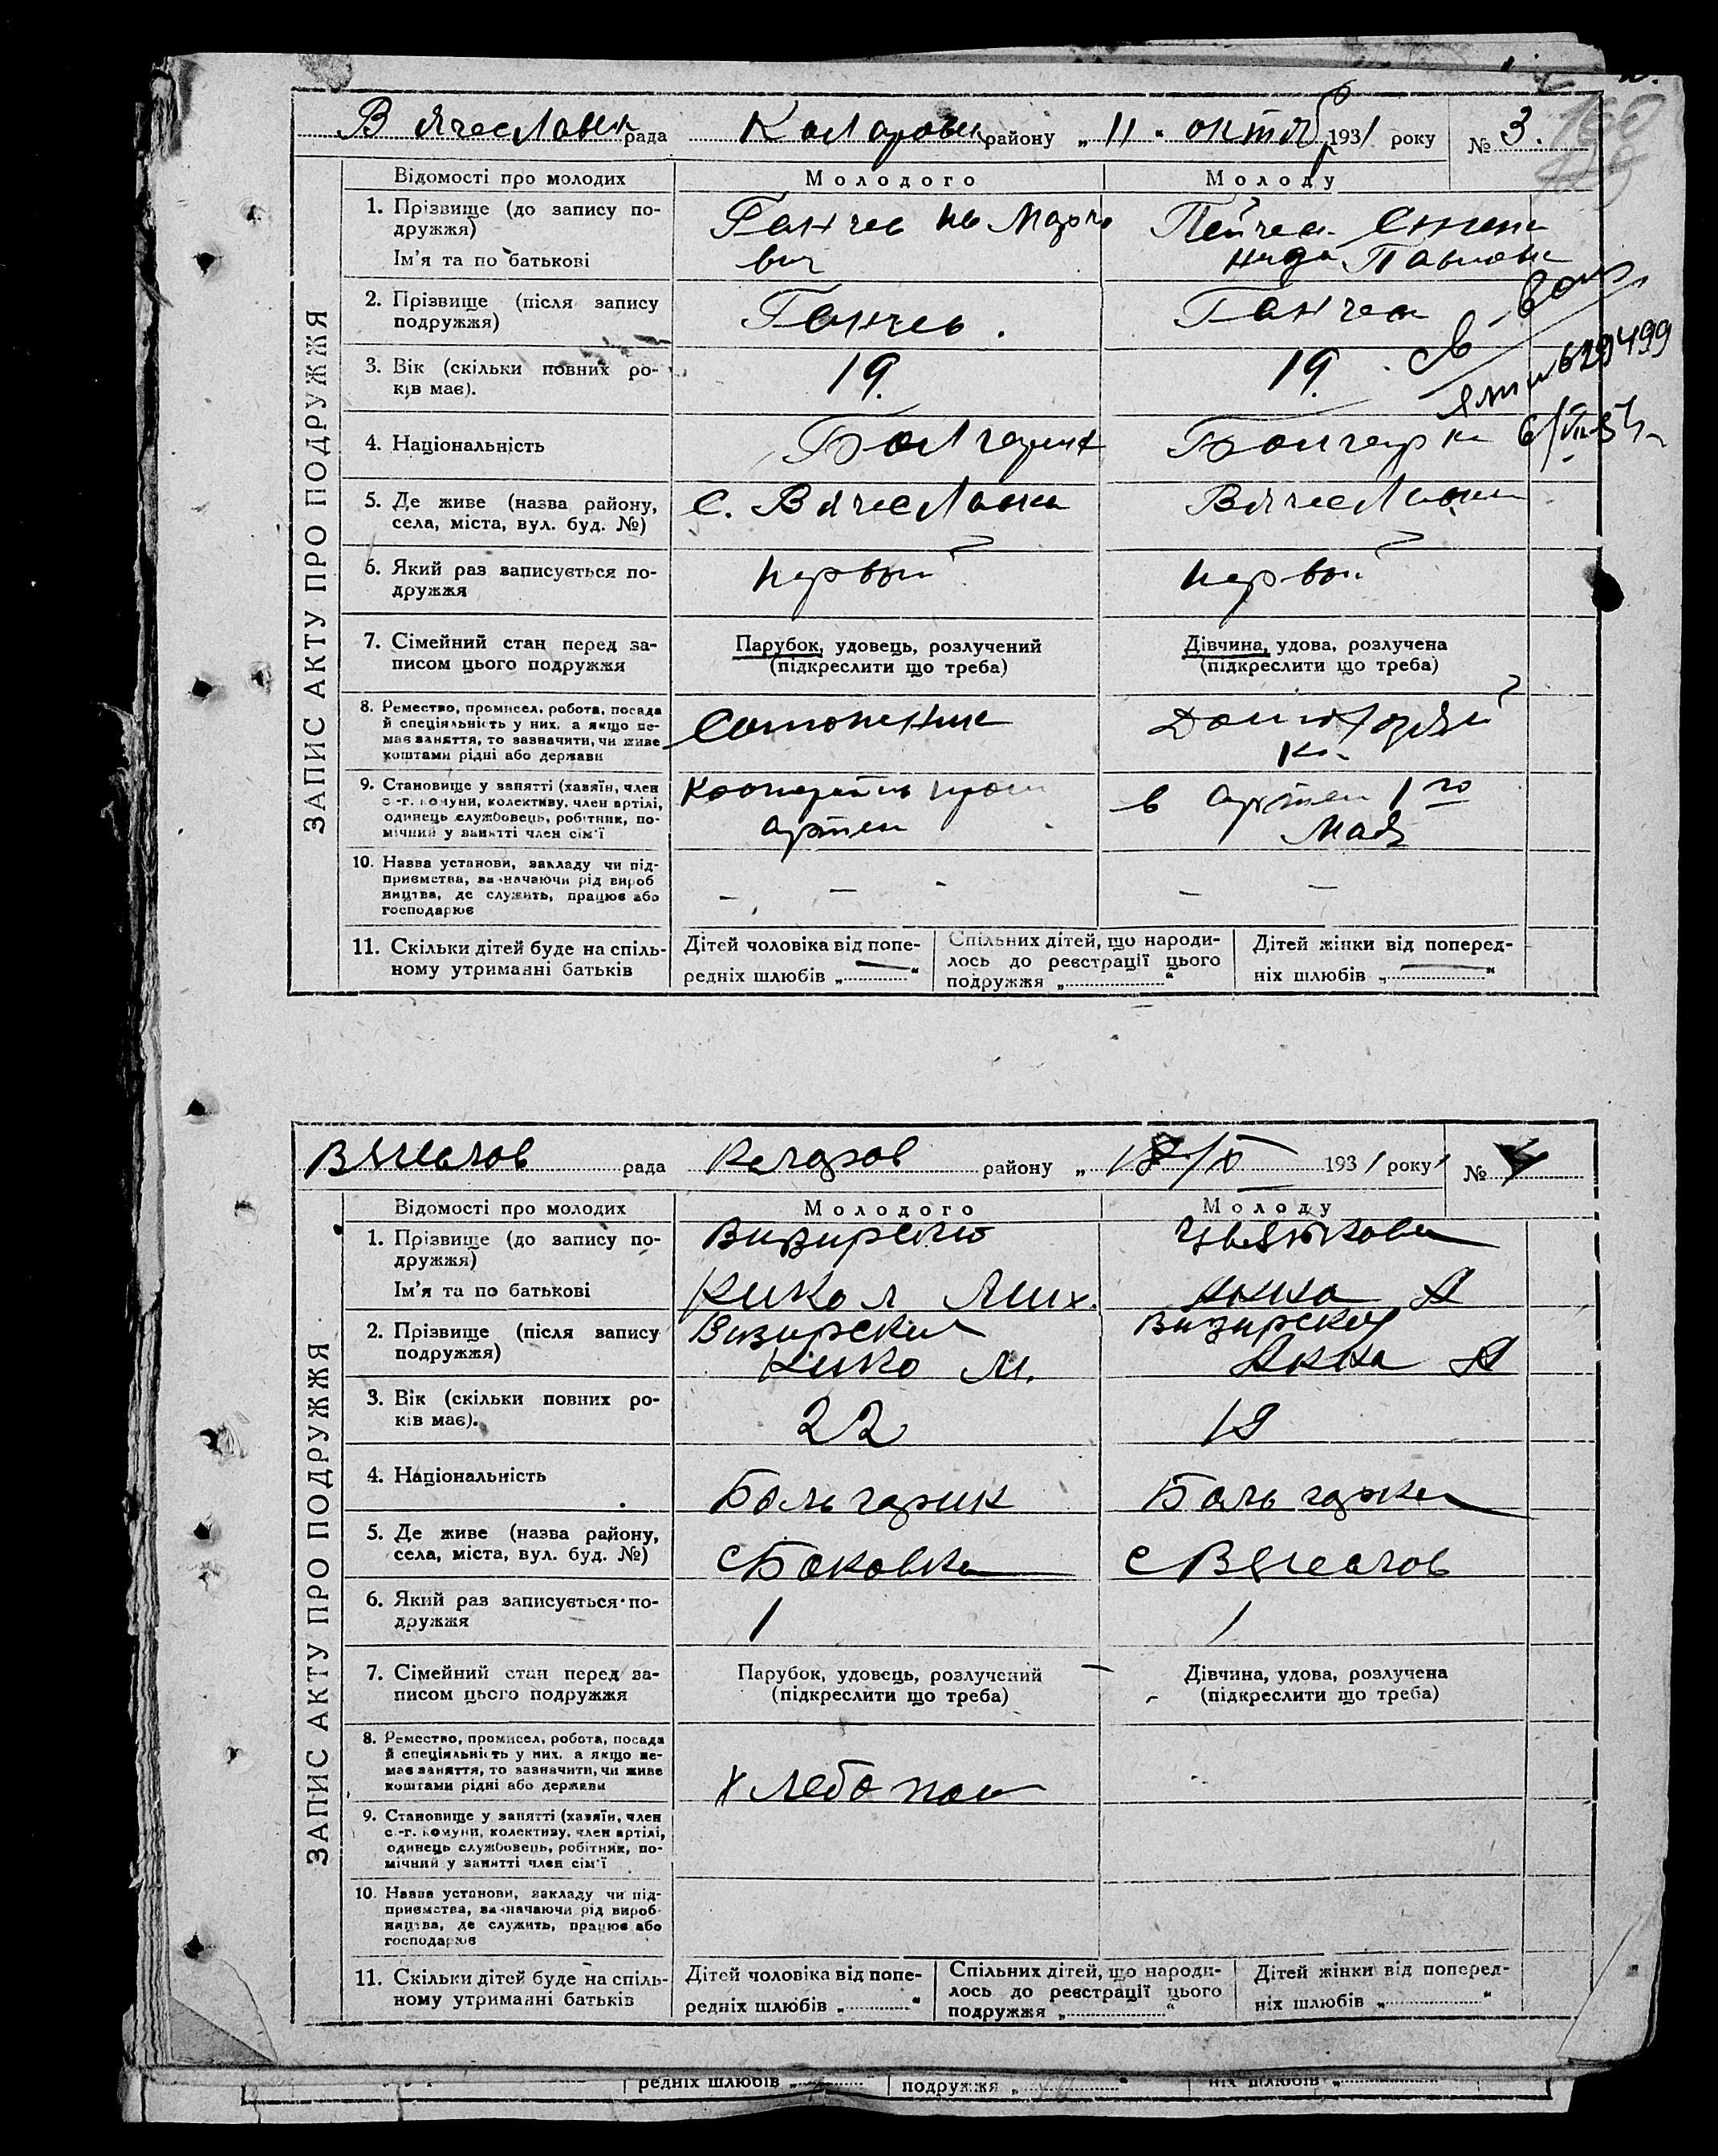 Вячеславск рада Коларовск району „ 11 " октяб 1931 року № 3.
ЗАПИС АКТУ ПРО ПОДРУЖЖЯ
Відомості про молодих Молодого Молоду
1. Прізвище (до запису подружжя)
Ім'я та по батькові
Ганчев Марко
вич
Пейчева
Павловн
2. Прізвище (після запису
подружжя)
Ганчев.
Ганчева
3. Вік (скільки повних ро-
ків має).
19.
19.
629499
4. Національність
Болгарин
Болгарка
5. Де живе (назва району,
села, міста, вул. буд. №)
с. Вячеславка
Вячеславка
6. Який раз записується по-
дружжя
первый
первый
7. Сімейний стан перед за-
писом цього подружжя
Парубок, удовець, розлучений
(підкреслити що треба)
Дівчина, удова, розлучена
(підкреслити що треба)
8. Ремество, промисел, робота, посада
й спеціяльність у них, а якщо не-
має заняття, то зазначити, чи живе
коштами рідні або держави
Сапожник
Домохозяй
ка
9. Становище у занятті (хазяїн, член
с.-г. комуни, колективу, член артілі,
одинець службовець, робітник, по-
мічний у занятті член сім'ї
артели
в артели 1го
Мая
10. Назва установи, закладу чи під-
приємства, зазначаючи рід вироб
ництва, де служить, працює або
господарює
– – -
– –
11. Скільки дітей буде на спіль-
ному утриманні батьків
Дітей чоловіка від попе-
редніх шлюбів „ — "
Спільних дітей, що народи-
лось до реєстрації цього
подружжя „ "
Дітей жінки від поперед-
ніх шлюбів „ — "
Вячеслов рада Коларов району „ 18/X 1931 року № 4
ЗАПИС АКТУ ПРО ПОДРУЖЖЯ
Відомості про молодих Молодого Молоду
1. Прізвище (до запису по-
дружжя)
Ім'я та по батькові
Визирский
Никол Мих.
Цветкова
Анна А
2. Прізвище (після запису
подружжя)
Визирский
Нико М.
Визирская
Анна А
3. Вік (скільки повних ро-
ків має).
22
18
4. Національність
Больгарин
Бальгарка
5. Де живе (назва району,
села, міста, вул. буд. №)
с Вячеслов
6. Який раз записується по-
дружжя
1
1
7. Сімейний стан перед за-
писом цього подружжя
Парубок, удовець, розлучений
(підкреслити що треба)
Дівчина, удова, розлучена
(підкреслити що треба)
8. Ремество, промисел, робота, посада
й спеціяльність у них, а якщо не-
має заняття, то зазначити, чи живе
коштами рідні або держави
Хлебопаш
9. Становище у занятті (хазяїн, член
с.-г. комуни, колективу, член артілі,
одинець службовець, робітник, по-
мічний у занятті член сім'ї
10. Назва установи, закладу чи під-
приємства, зазначаючи рід вироб-
ництва, де служить, працює або
господарює
11. Скільки дітей буде на спіль-
ному утриманні батьків
Дітей чоловіка від попе-
редніх шлюбів „ "
Спільних дітей, що народи-
лось до реєстрації цього
подружжя „ "
Дітей жінки від поперед-
ніх шлюбів „ "
редніх шлюбів „ " подружжя „ " ніх шлюбів „